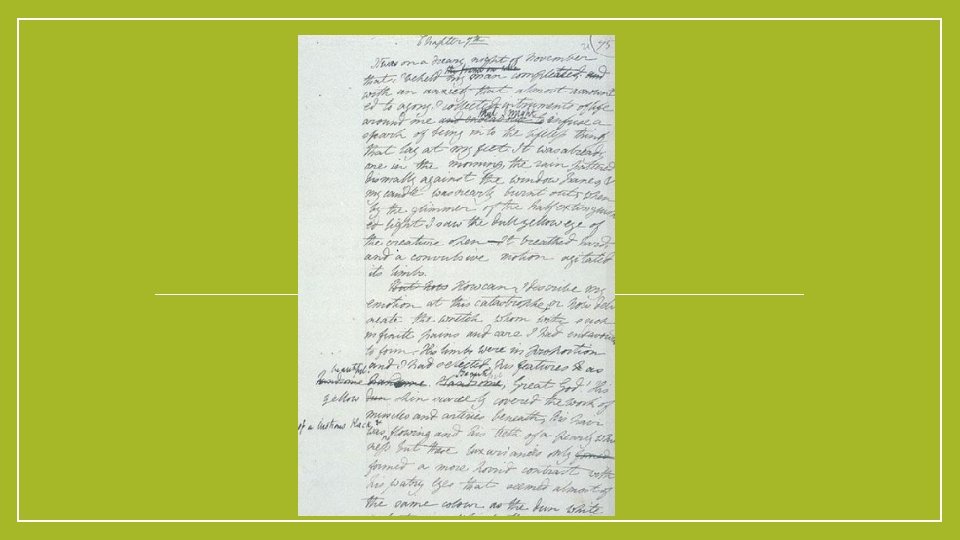 Chapter 7th
75
It was on a dreary night of November
the frame on whic
that I beheld my man compleated and
with an anxiety that almost amount
ed to agony I collected instruments of life
that I might
around me and endeavour to infuse a
spark of being into the lifeless thing
that lay at my feet. It was already
one in the morning, the rain pattered
dismally against the window panes &
my candle was nearly burnt out, when
by the glimmer of the half extinguish
ed light I saw the dull yellow eye of
the creature open — It breathed hard
and a convulsive motion agitated
its limbs.
But how How can I describe my
emotion at this catastrophe, or how deli
neate the wretch whom with such
infinite pains and care I had endeavour
to form. His limbs were in proportion
and I had selected his features as
beautiful
handsome handsome. Handsome, Great God! His
yellow dun skin scarcely covered the work of
muscles and arteries beneath; his hair
of a lustrous black &
was flowing and his teeth of a pearly white
ness but these luxuriances only formed
formed a more horrid contrast with
his watry eyes that seemed almost of
the same colour as the dun white